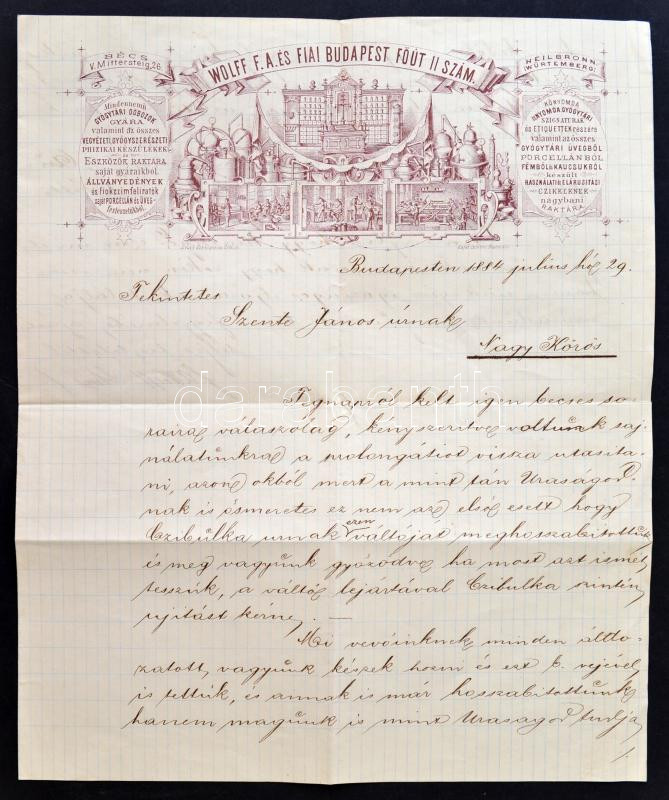 WOLFF F. A. ÉS FIAI BUDAPEST FŐÚT 11 SZÁM.
BÉCS
V. Mittersteig, 26.
Mindennemü
GYÓGYTÁRI DOBOZOK
GYÁRA
valamint az összes
VEGYÉSZETI, GYÓGYSZERÉSZETI
PHIZIKAI KÉSZÜLÉKEK
és
ESZKÖZÖK RAKTÁRA
saját gyáraikból.
ÁLLVÁNYEDÉNYEK
és fiókzimfeliratok
saját PORCELLÁN és ÜVEG
festészetükből.
HEILBRONN
WÜRTEMBERG.
KÖNYOMDA
NYOMDA GYÓGYTÁRI
SZIGNATURÁK
és ETIQUETTEK részére
valamint az összes
GYÓGYTÁRI ÜVEGBŐL
PORCELLÁNBÓL
FÉMBŐL és KAUCSUKBÓL
készült
HASZNÁLATI és ELÁRUSITÁSI
CZIKKEKNEK
nagybani
RAKTÁRA.
Budapesten 1884 július hó 29.
Tekintetes
Szente János úrnak
Nagy Körös
Tegnapról kelt igen becses so-
raira válaszólag, kényszerítve voltunk saj-
nálatunkra a prolongátiot vissza utasíta-
ni, azon okból mert a mint tán Uraságod
nak is ösmeretes ez nem az első esett hogy
Czibulka urnak ezen váltóját meghosszabitottuk,
és meg vagyunk győződve ha most azt ismét
tesszük, a váltó lejártával Czibulka szintén
ujitást kérne. —
Mi vevőinknek minden áldo-
zatott, vagyunk készek hozni és ezt b. vejével
is tettük, és annak is már hosszabitottunk
hanem magunk is mint Uraságod tudja
/.
darabanth